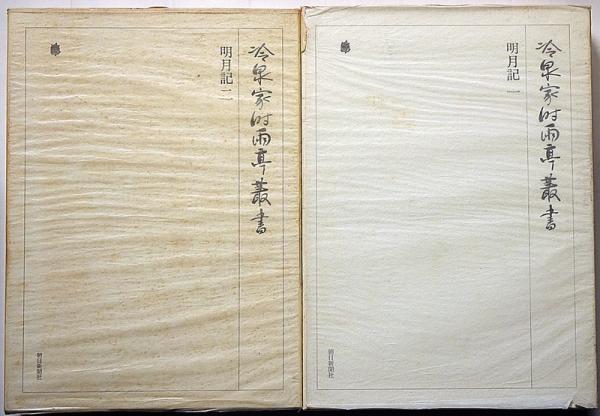 冷泉家時雨亭叢書
明月記一
朝日新聞社
冷泉家時雨亭叢書
明月記二
朝日新聞社